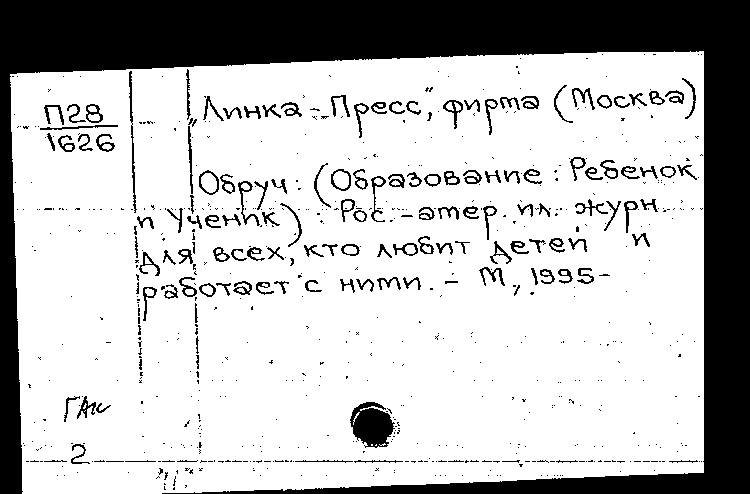 П28
1626
„Линка-Пресс“, фирма (Москва)
Обруч : (Образование : Ребенок
и Ученик) : Рос.-амер. ил. журн.
для всех, кто любит детей и
работает с ними. - М, 1995-
2